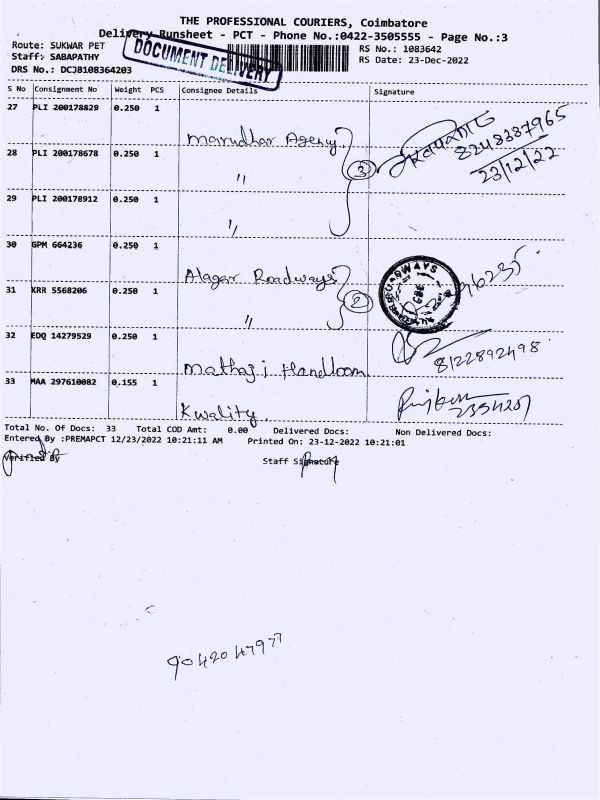 THE PROFESSIONAL COURIERS, Coimbatore
Delivery Runsheet - PCT - Phone No.:0422-3505555 - Page No.:3
Route: SUKWAR PET
RS No.: 1083642
Staff: SABAPATHY
RS Date: 23-Dec-2022
DRS No.: DCJB108364203
DOCUMENT DELIVERY
S No Consignment No Weight PCS Consignee Details Signature
27 PLI 200178829 0.250 1
Marudhar Agency
8248387965
28 PLI 200178678 0.250 1
3
23/12/22
"
29 PLI 200178912 0.250 1
"
30 GPM 664236 0.250 1
Alagar Roadways
31 KRR 5568206 0.250 1
2
"
32 EDQ 14279529 0.250 1
8122892498
Mathaji Handloom
33 MAA 297610082 0.155 1
Kwality
Total No. Of Docs: 33 Total COD Amt: 0.00 Delivered Docs: Non Delivered Docs:
Entered By :PREMAPCT 12/23/2022 10:21:11 AM Printed On: 23-12-2022 10:21:01
Verified By
Staff Signature